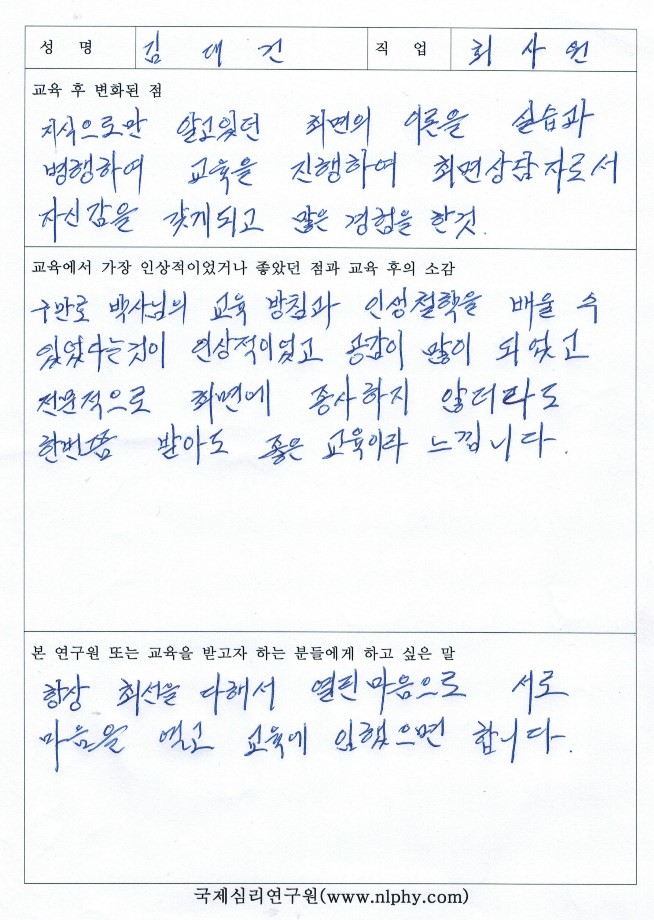 성 명 김 대 건 직 업 회 사 원
교육 후 변화된 점
지식으로만 알고있던 최면의 이론을 실습과
병행하여 교육을 진행하여 최면상담자로서
자신감을 갖게되고 많은 경험을 한것.
교육에서 가장 인상적이었거나 좋았던 점과 교육 후의 소감
구만로 박사님의 교육 방침과 인생철학을 배울 수
있었다는것이 인상적이었고 공감이 많이 되었고
전문적으로 최면에 종사하지 않더라도
한번쯤 받아도 좋은 교육이라 느낍니다.
본 연구원 또는 교육을 받고자 하는 분들에게 하고 싶은 말
항상 최선을 다해서 열린마음으로 서로
마음을 열고 교육에 임했으면 합니다.
국제심리연구원(www.nlphy.com)